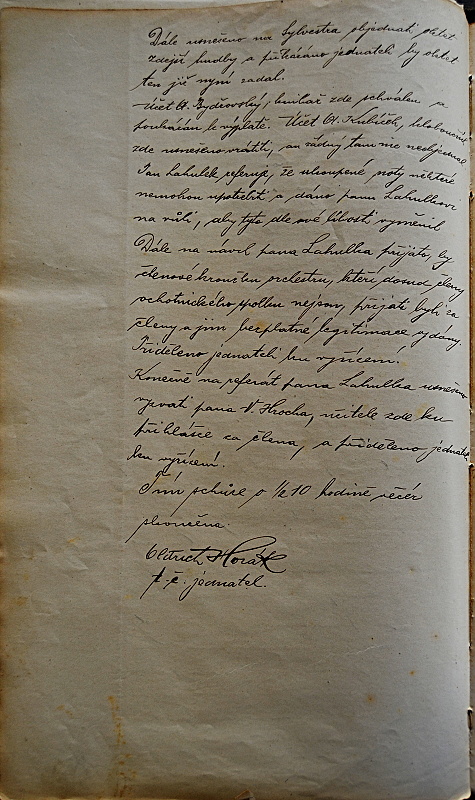 Dále usneseno na Sylvestra objednati oktet
zdejší hudby a přikázáno jednateli by oktet
ten již nyní zadal.
Účet A. Bydžovský, knihař zde schválen a
poukázán k výplatě. Účet A. Kubíček, kloboučník
zde usneseno vrátiti, an žádný tam nic neobjednal
Pan Lahulek referuje, že zakoupené noty některé
nemohou upotřebit a dáno panu Lahulkovi
na vůli, aby tyto dle své libosti vyměnil
Dále na návrh pana Lahulka přijato, by
členové kroužku orchestru, kteří dosud členy
ochotnického spolku nejsou, přijati byli za
členy a jim bezplatné legitimace vydány.
Přiděleno jednateli ku vyřízení.
Konečně na referát pana Lahulka usneseno
vyzvati pana V. Hrocha, učitele zde ku
přihlášce za člena, a přiděleno jednateli
ku vyřízení.
Tím schůze o 1/2 10 hodině večer
skončena.
Oldřich Horák
t. č. jednatel.